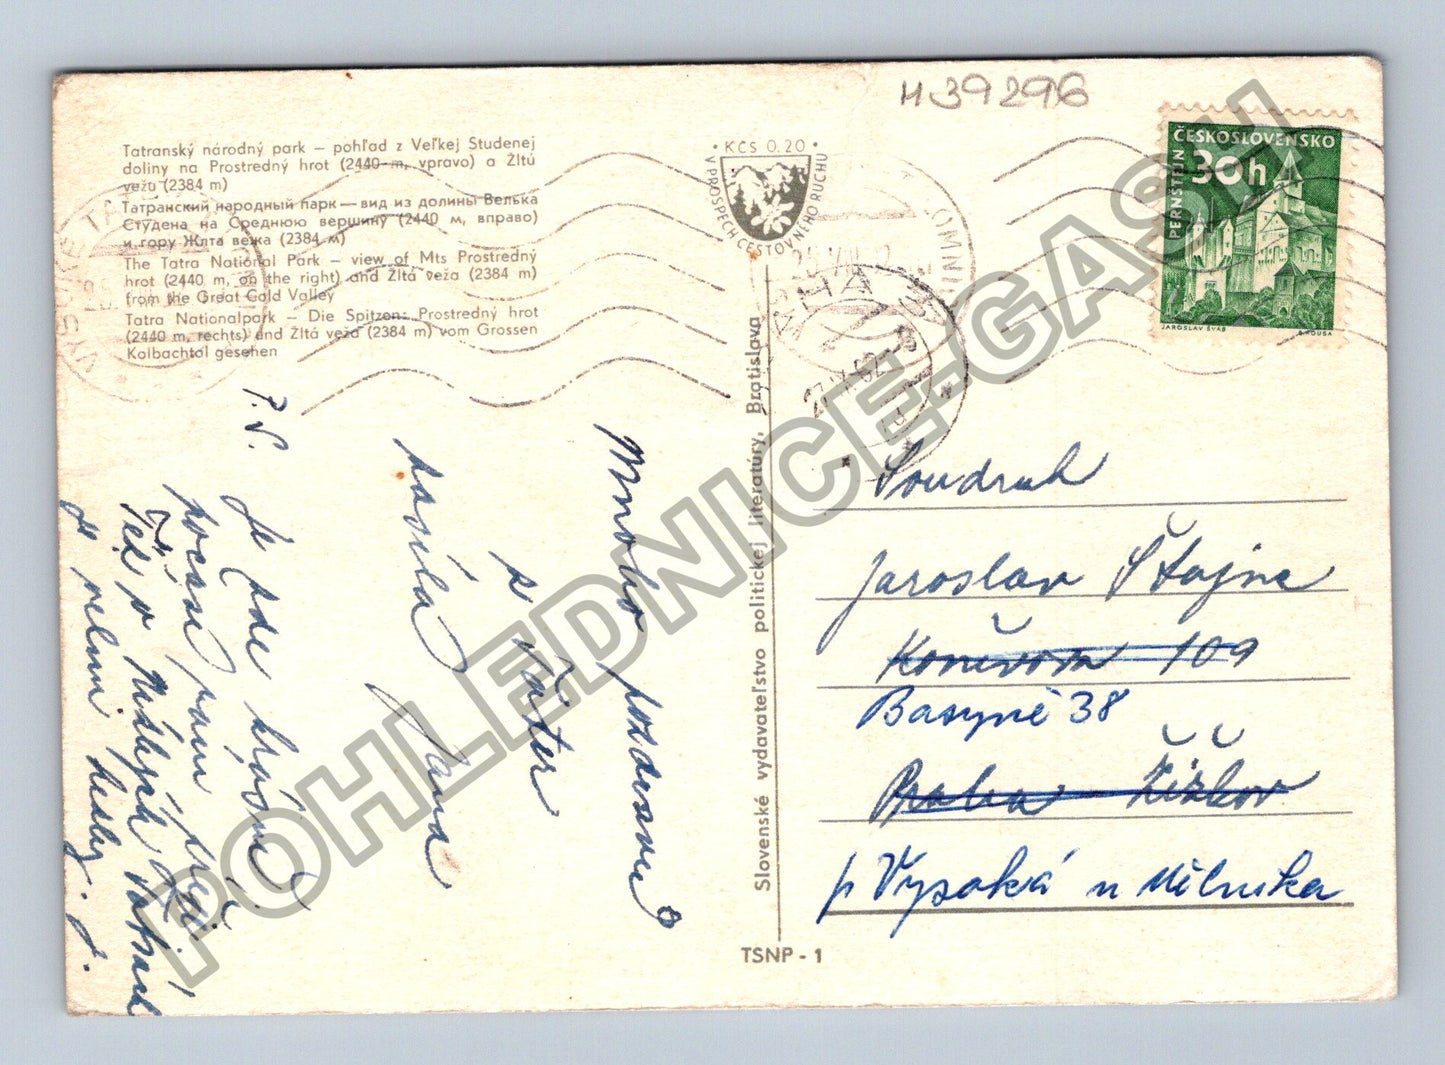 H39296
Tatranský národný park – pohľad z Veľkej Studenej
doliny na Prostredný hrot (2440 m, vpravo) a Žltú
vežu (2384 m)
Татранский народный парк — вид из долины Велька
Студена на Среднюю вершину (2440 м, вправо)
и гору Жлта вежа (2384 м)
The Tatra National Park – view of Mts Prostredný
hrot (2440 m, on the right) and Žltá veža (2384 m)
from the Great Cold Valley
Tatra Nationalpark – Die Spitzen: Prostredný hrot
(2440 m, rechts) und Žltá veža (2384 m) vom Grossen
Kolbachtal gesehen
· KČS 0.20 ·
V PROSPECH CESTOVNÉHO RUCHU
ČESKOSLOVENSKO
30h
PERNŠTEJN
JAROSLAV ŠVÁB
Mnoho pozdravů
z Tater
Jana
P.S.
Je zde krásně
počasí
Též v
je velmi hezky.
Soudruh
Jaroslav Štajnc
109
Basyně 38
Praha Žižkov
p Vysoká u Mělníka
Slovenské vydavateľstvo politickej literatúry, Bratislava
TSNP - 1
POHLEDNICE-GASH